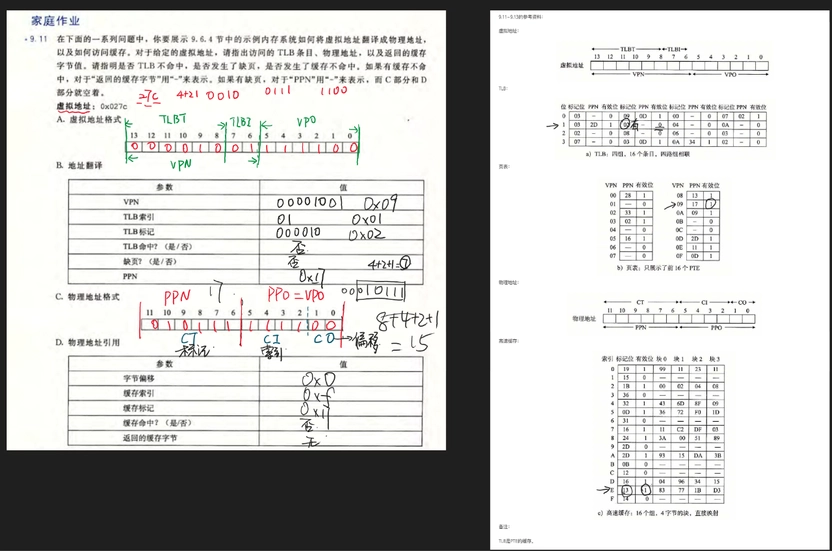 家庭作业
9.11 在下面的一系列问题中，你要展示 9.6.4 节中的示例内存系统如何将虚拟地址翻译成物理地址，
以及如何访问缓存。对于给定的虚拟地址，请指出访问的 TLB 条目、物理地址，以及返回的缓存
字节值。请指明是否 TLB 不命中，是否发生了缺页，是否发生了缓存不命中。如果有缓存不命
中，对于“返回的缓存字节”用“-”来表示。如果有缺页，对于“PPN”用“-”来表示，而 C 部分和 D
部分就空着。
27C 4+21 0010 0111 1100
虚拟地址：0x027c
A. 虚拟地址格式
TLBT TLBI VPO
13 12 11 10 9 8 7 6 5 4 3 2 1 0
VPN
B. 地址翻译
参数 值
VPN 00001001 0x09
TLB索引 01 0x01
TLB标记 000010 0x02
TLB命中？（是/否） 否
缺页？（是/否） 否 4+2+1=7
PPN 0x17
C. 物理地址格式 PPN 17 PPO=VPO 00010111
11 10 9 8 7 6 5 4 3 2 1 0
8+4+2+1
=15
CT CI CO 偏移
标记 索引
D. 物理地址引用
参数 值
字节偏移 0x0
缓存索引 0xf
缓存标记 0x17
缓存命中？（是/否） 否
返回的缓存字节 无
虚拟地址:
TLBT TLBI
13 12 11 10 9 8 7 6 5 4 3 2 1 0
虚拟地址
VPN VPO
位 标记位 PPN 有效位 标记位 PPN 有效位 标记位 PPN 有效位 标记位 PPN 有效位
0 03 – 0 09 0D 1 00 – 0 07 02 1
1 03 2D 1 02 – 0 04 – 0 0A – 0
2 02 – 0 08 – 0 06 – 0 03 – 0
3 07 – 0 03 0D 1 0A 34 1 02 – 0
a) TLB：四组，16 个条目，四路组相联
页表:
VPN PPN 有效位 VPN PPN 有效位
00 28 1 08 13 1
01 — 0 09 17 1
02 33 1 0A 09 1
03 02 1 0B — 0
04 — 0 0C — 0
05 16 1 0D 2D 1
06 — 0 0E 11 1
07 — 0 0F 0D 1
b) 页表：只展示了前 16 个 PTE
物理地址:
CT CI CO
11 10 9 8 7 6 5 4 3 2 1 0
物理地址
PPN PPO
高速缓存:
索引 标记位 有效位 块 0 块 1 块 2 块 3
0 19 1 99 11 23 11
1 15 0 — — — —
2 1B 1 00 02 04 08
3 36 0 — — — —
4 32 1 43 6D 8F 09
5 0D 1 36 72 F0 1D
6 31 0 — — — —
7 16 1 11 C2 DF 03
8 24 1 3A 00 51 89
9 2D 0 — — — —
A 2D 1 93 15 DA 3B
B 0B 0 — — — —
C 12 0 — — — —
D 16 1 04 96 34 15
E 13 1 83 77 1B D3
F 14 0 — — — —
c) 高速缓存：16 个组，4 字节的块，直接映射
备注:
TLB是PTE的缓存。